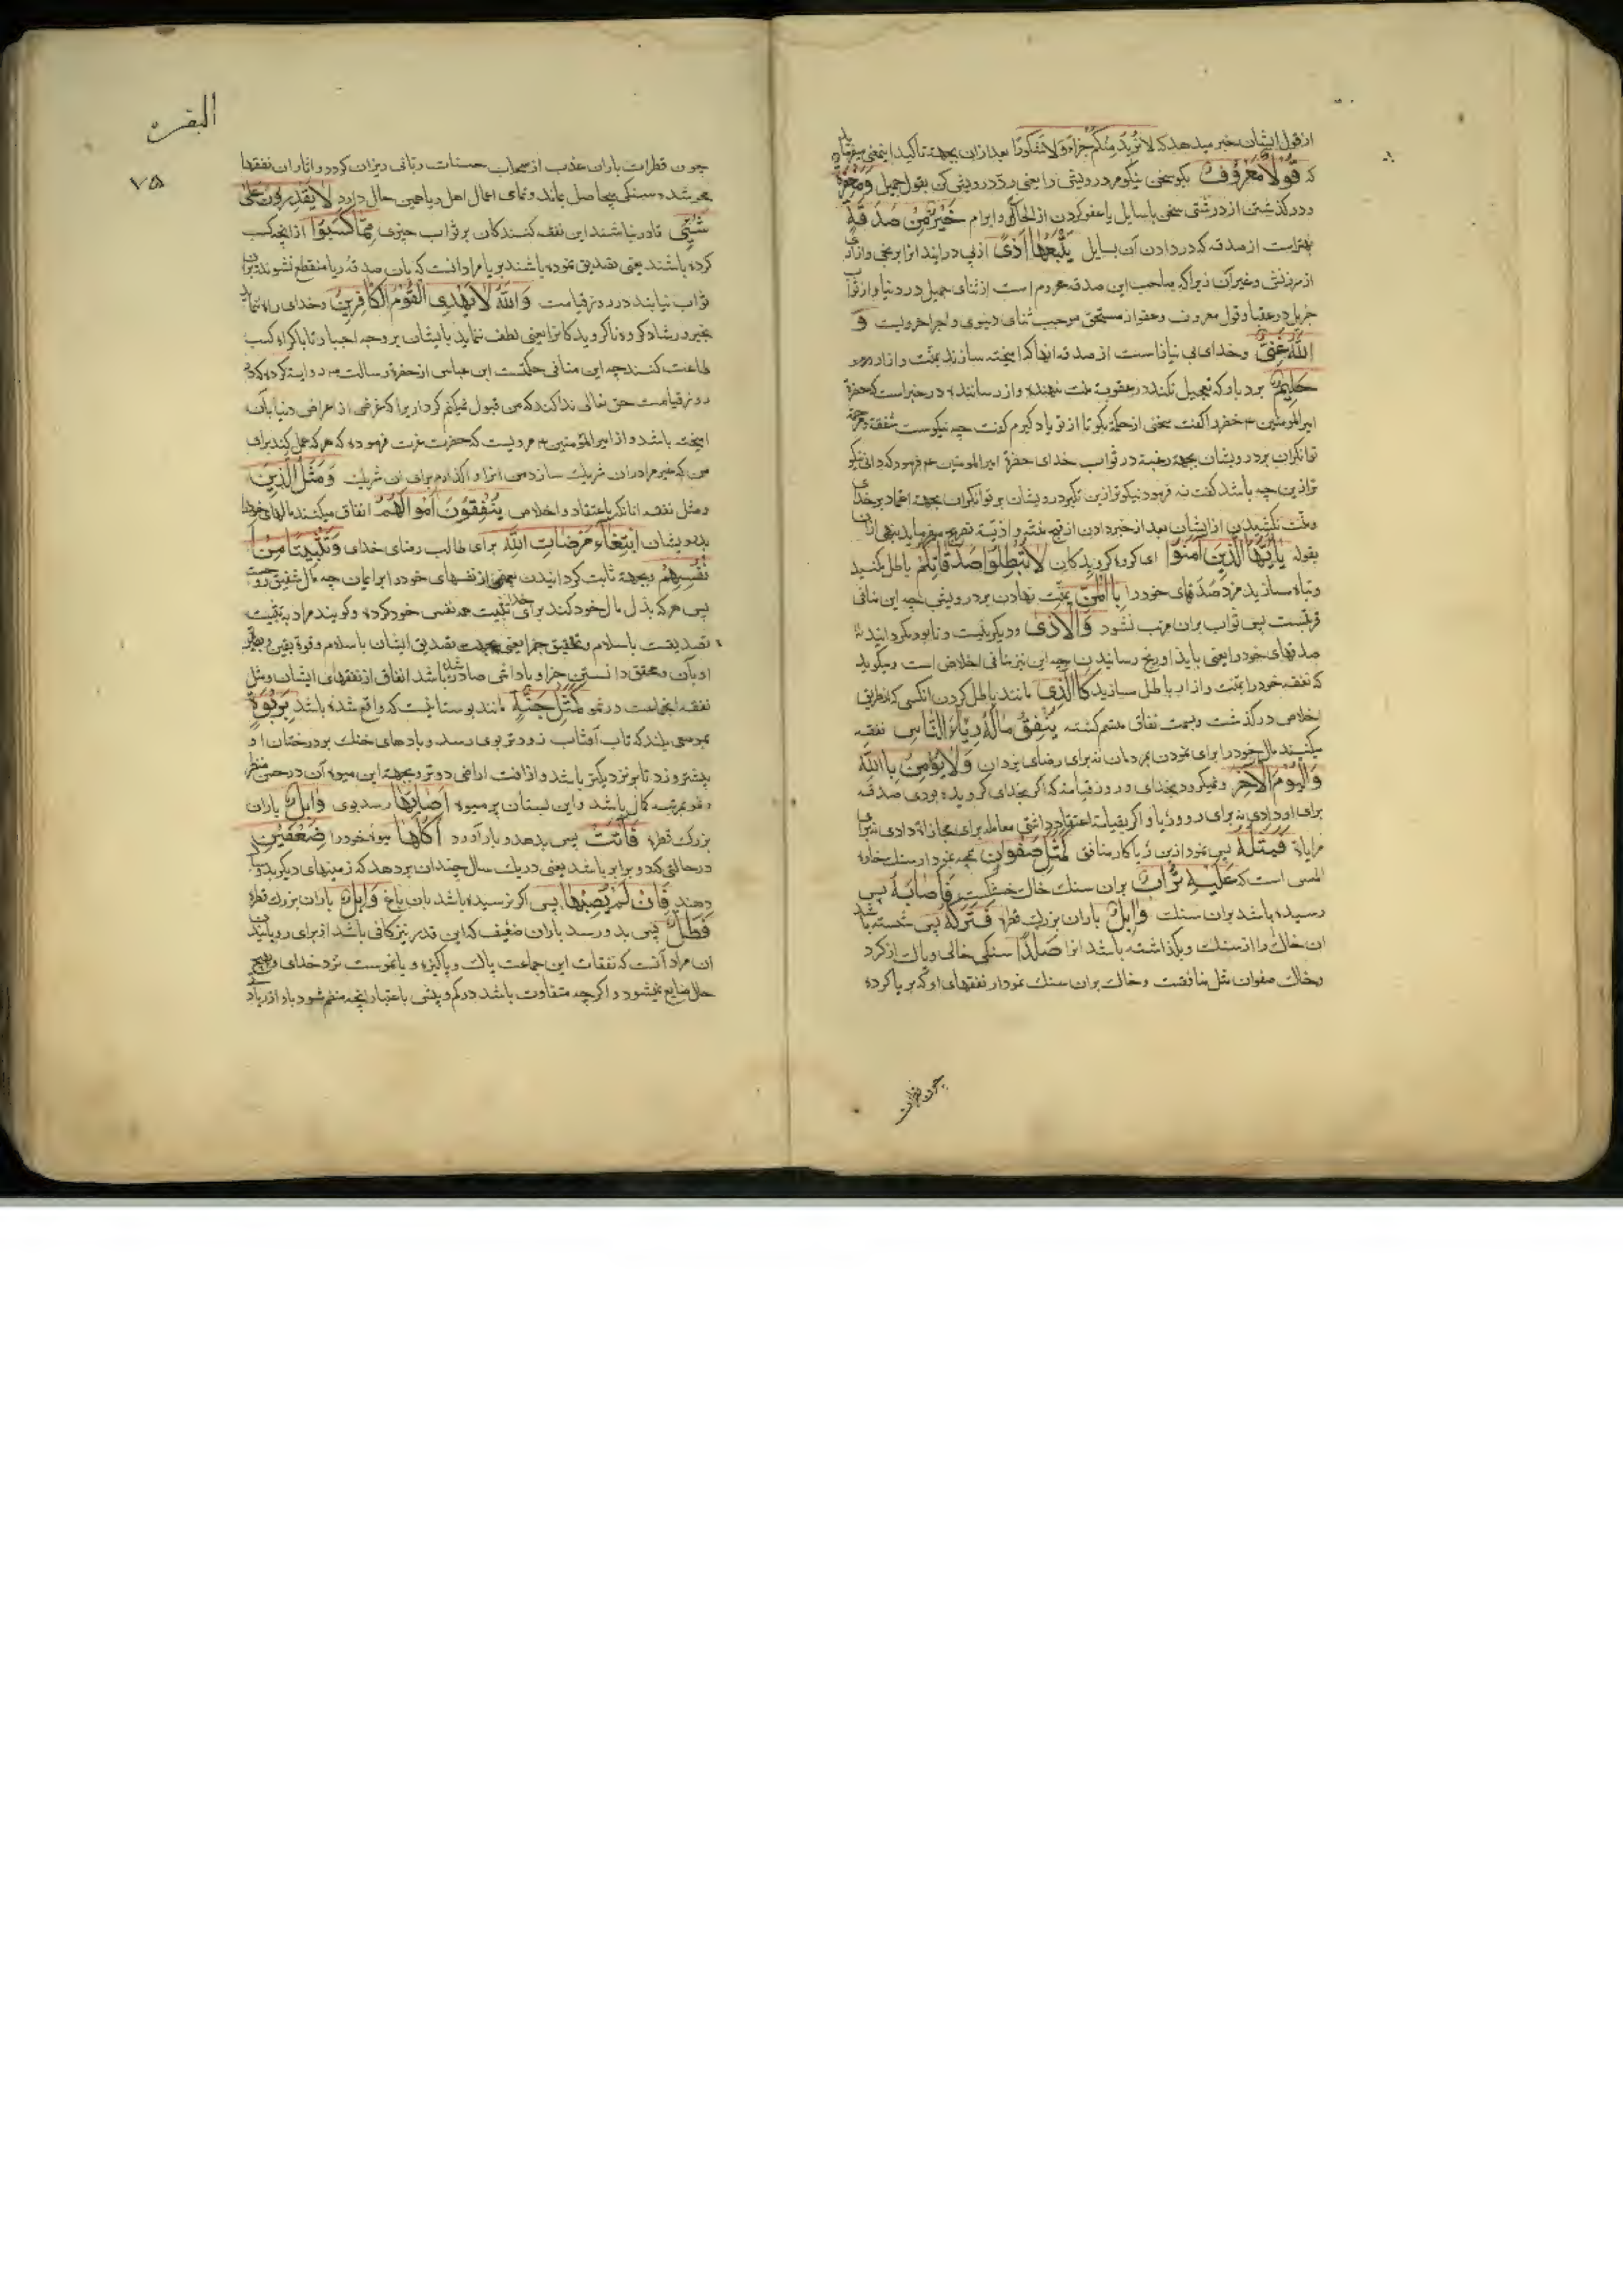 از قول ایشان خبر میدهد که لا نُرِیدُ مِنکُم جَزَاءً وَلَا شُکُورًا بعد ازان بجهت تاکید این معنی میفرماید
که قَوْلٌ مَعْرُوفٌ بکو سخن نیکو مر درویش را یعنی رد درویش کن بقول جمیل وَمَغْفِرَةٌ
و در کذشتن از درشتی سخن با سایل یا عفو کردن از الحاح و ابرام خَیْرٌ مِنْ صَدَقَةٍ
بهتر است از صدقه که در دادن آن بسایل یَتْبَعُهَا اَذًی اذیی در آید انرا برنجی و ازاری
از سرزنش و غیر آن زیرا که صاحب این صدقه محروم است از ثنای جمیل در دنیا و از ثواب
جزیل در عقبا و قول معروف و عفو از مستحق موجب ثنای دنیوی و اجر اخرویست وَ
اللّٰهُ غَنِیٌّ و خدای بی نیاز است از صدقه انها که امیخته سازند بمنت و ازار
حَلِیمٌ بردبار که تعجیل نکند در عقوبت منت نهنده و ازار رسانند در خبر است که حضرة
امیر المومنین خضر را کفت سخنی از حکمة بکو تا از تو یاد کیرم کفت چه نیکوست شفقة و مرحمة
توانکران بر درویشان بجهة رغبة در ثواب خدای حضرة امیر المومنین فرمود که دانی نیکو
تر ازین چه باشد کفت نه فرمود نیکوتر ازین تکبر درویشان بر توانکران بجهة اعتماد بر خدای
و منت نکشیدن از ایشان بعد از خبر دادن از قبح منت و اذیت تصریح میفرماید بنهی ازان
بقوله یَا اَیُّهَا الَّذِینَ آمَنُوا ای کروه کرویدکان لَا تُبْطِلُوا صَدَقَاتِکُمْ باطل مکنید
و تباه مسازید مزد صدقهای خود را بِالْمَنِّ بمنت نهادن بر درویش چه این منافی
قربتست پس ثواب بران مرتب نشود وَالْاَذَی و دیکر نیست و نابود مکردانید
صدقهای خود را یعنی بایذا و رنج رسانیدن چه این نیز منافی اخلاص است و میکوید
که نفقه خود را بمنت و ازار باطل مسازید کَالَّذِی مانند باطل کردن انکسی که از طریق
اخلاص در کذشت و بسمت نفاق متسم کشته یُنْفِقُ مَالَهُ رِیَاءَ النَّاسِ نفقه
میکند مال خود را برای نمودن بمردمان نه برای رضای یزدان وَلَا یُؤْمِنُ بِاللّٰهِ
وَالْیَوْمِ الْآخِرِ و نمیکرود بخدای و روز قیامت که اکر بخدای کرویده بودی صدقه
برای او دادی نه برای رو و ریا و اکر بقیامت اعتقاد داشتی معامله برای مجازاة دادی نه برای
مرایاة فَمَثَلُهُ پس نمودار این ریاکار منافق کَمَثَلِ صَفْوَانٍ همچه نمودار سنک خاره
املس است که عَلَیْهِ تُرَابٌ بران سنک خاک خشکست فَاَصَابَهُ پس
رسیده باشد بران سنک وَابِلٌ باران بزرک قطره فَتَرَکَهُ پس شسته باشد
ان خاک را از سنک و بکذاشته باشد انرا صَلْدًا سنکی خالی و پاک از کرد
و خاک صفوان مثل منافقست و خاک بران سنک نمودار نفقهای او که بریا کرده
چون قطرات
البقرة
۷۵
چون قطرات باران عذب از سحاب حسنات ربانی ریزان کردد و اثاران نفقها
محو شده و سنکی بیحاصل بماند و نمای اعمال اهل ریا همین حال دارد لَا یَقْدِرُونَ عَلَی
شَیْءٍ قادر نباشند این نفقه کنندکان بر ثواب چیزی مِمَّا کَسَبُوا از انچه کسب
کرده باشند یعنی تصدیق نموده باشند بریا مراد انست که بان صدقه ریا منتفع نشوند بران
ثواب نیابند در روز قیامت وَاللّٰهُ لَا یَهْدِی الْقَوْمَ الْکَافِرِینَ و خدای راه ننماید
بخیر و رشاد کروه ناکرویدکانرا یعنی لطف ننماید بایشان بر وجه اجبار تا باکراه کسب
طاعت کنند چه این منافی حکمتست ابن عباس از حضرة رسالت روایت کرده که
روز قیامت حق تعالی ندا کند که من قبول نمیکنم کردار یرا که غرض از اعراض دنیا بان
امیخته باشد و از امیر المؤمنین مرویست که حضرت عزت فرموده که هر که عمل کند برای
من که غیر مرا دران شریک سازد من انرا واکذارم برای ان شریک وَمَثَلُ الَّذِینَ
و مثل نفقه انانکه باعتقاد و اخلاص یُنْفِقُونَ اَمْوَالَهُمُ انفاق میکنند مالهای خود را
بدرویشان ابْتِغَاءَ مَرْضَاتِ اللّٰهِ برای طلب رضای خدای وَتَثْبِیتًا مِنْ
اَنْفُسِهِمْ و بجهة ثابت کردانیدن بعضی از نفسهای خود را بر ایمان چه مال شقیق روحست
پس هر که بذل مال خود کند برای خدا تثبیت همه نفس خود کرده و کویند مراد به تثبیت
تصدیقست باسلام و تحقیق جزا یعنی بجهت تصدیق ایشان باسلام و قوة یقین و بصیرت
او بآن و محقق دانستن جزا و پاداش صادر شده باشد انفاق از نفقهای ایشان و مثل
نفقه انجماعت در نمو کَمَثَلِ جَنَّةٍ مانند بوستانیست که واقع شده باشد بِرَبْوَةٍ
بموضعی بلند که تاب آفتاب زودتر بوی رسد و بادهای خنک بر درختان او
بیشتر وزد تا بر نزدیکتر باشد و از افت اراضی دورتر و بجهة این میوه آن در حسن منظر
و نمو بمرتبه کمال باشد و این بستان پر میوه اَصَابَهَا رسد بوی وَابِلٌ باران
بزرک قطره فَآتَتْ پس بدهد و بار آورد اُکُلَهَا میوه خود را ضِعْفَیْنِ
در حالتی که دو برابر باشد یعنی در یک سال چندان بر دهد که زمینهای دیکر بدو سال
دهند فَاِنْ لَمْ یُصِبْهَا پس اکر نرسیده باشد بان باغ وَابِلٌ باران بزرک قطره
فَطَلٌّ پس بدو رسد باران ضعیف که این قدر نیز کافی باشد از برای رویانیدن
ان مراد آنست که نفقات این جماعت پاک و پاکیزه و با نموست نزد خدای و بهیچ
حال ضایع نمیشود و اکرچه متفاوت باشد در کم و بیش باعتبار انچه منضم شود باو از زیاد